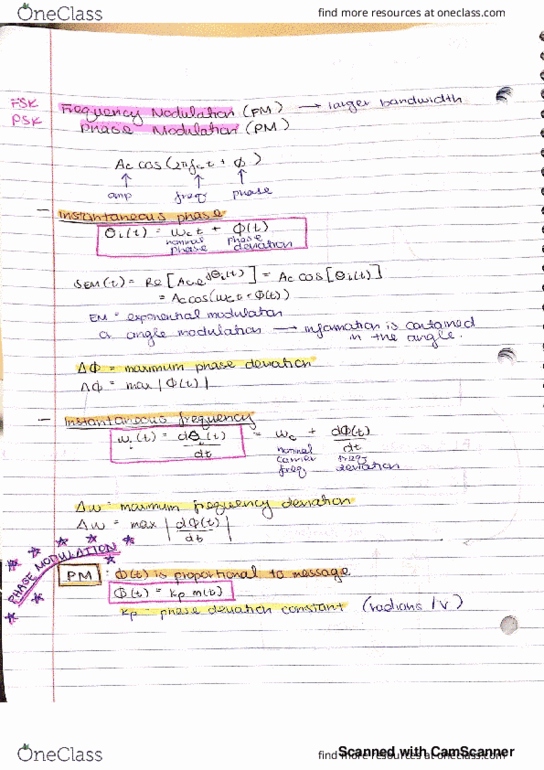 OneClass find more resources at oneclass.com
FSK
PSK
Frequency Modulation (FM) → larger bandwidth
Phase Modulation (PM)
Ac cos (2πfct + ϕ)
↑ ↑ ↑
amp freq phase
- Instantaneous phase
θi(t) = ωct + ϕ(t)
nominal phase
phase deviation
SEM(t) = Re[Ac e^jθi(t)] = Ac cos[θi(t)]
= Ac cos(ωct + ϕ(t))
EM = exponential modulation
or angle modulation → information is contained
in the angle.
Δϕ = maximum phase deviation
Δϕ = max |ϕ(t)|
- Instantaneous frequency
ωi(t) = dθi(t)/dt = ωc + dϕ(t)/dt
nominal freq
carrier deviation
freq
Δω = maximum frequency deviation
Δω = max |dϕ(t)/dt|
PHASE MODULATION
PM ϕ(t) is proportional to message
ϕ(t) = kp m(t)
kp = phase deviation constant (radians / V)
Scanned with CamScanner
OneClass find more resources at oneclass.com